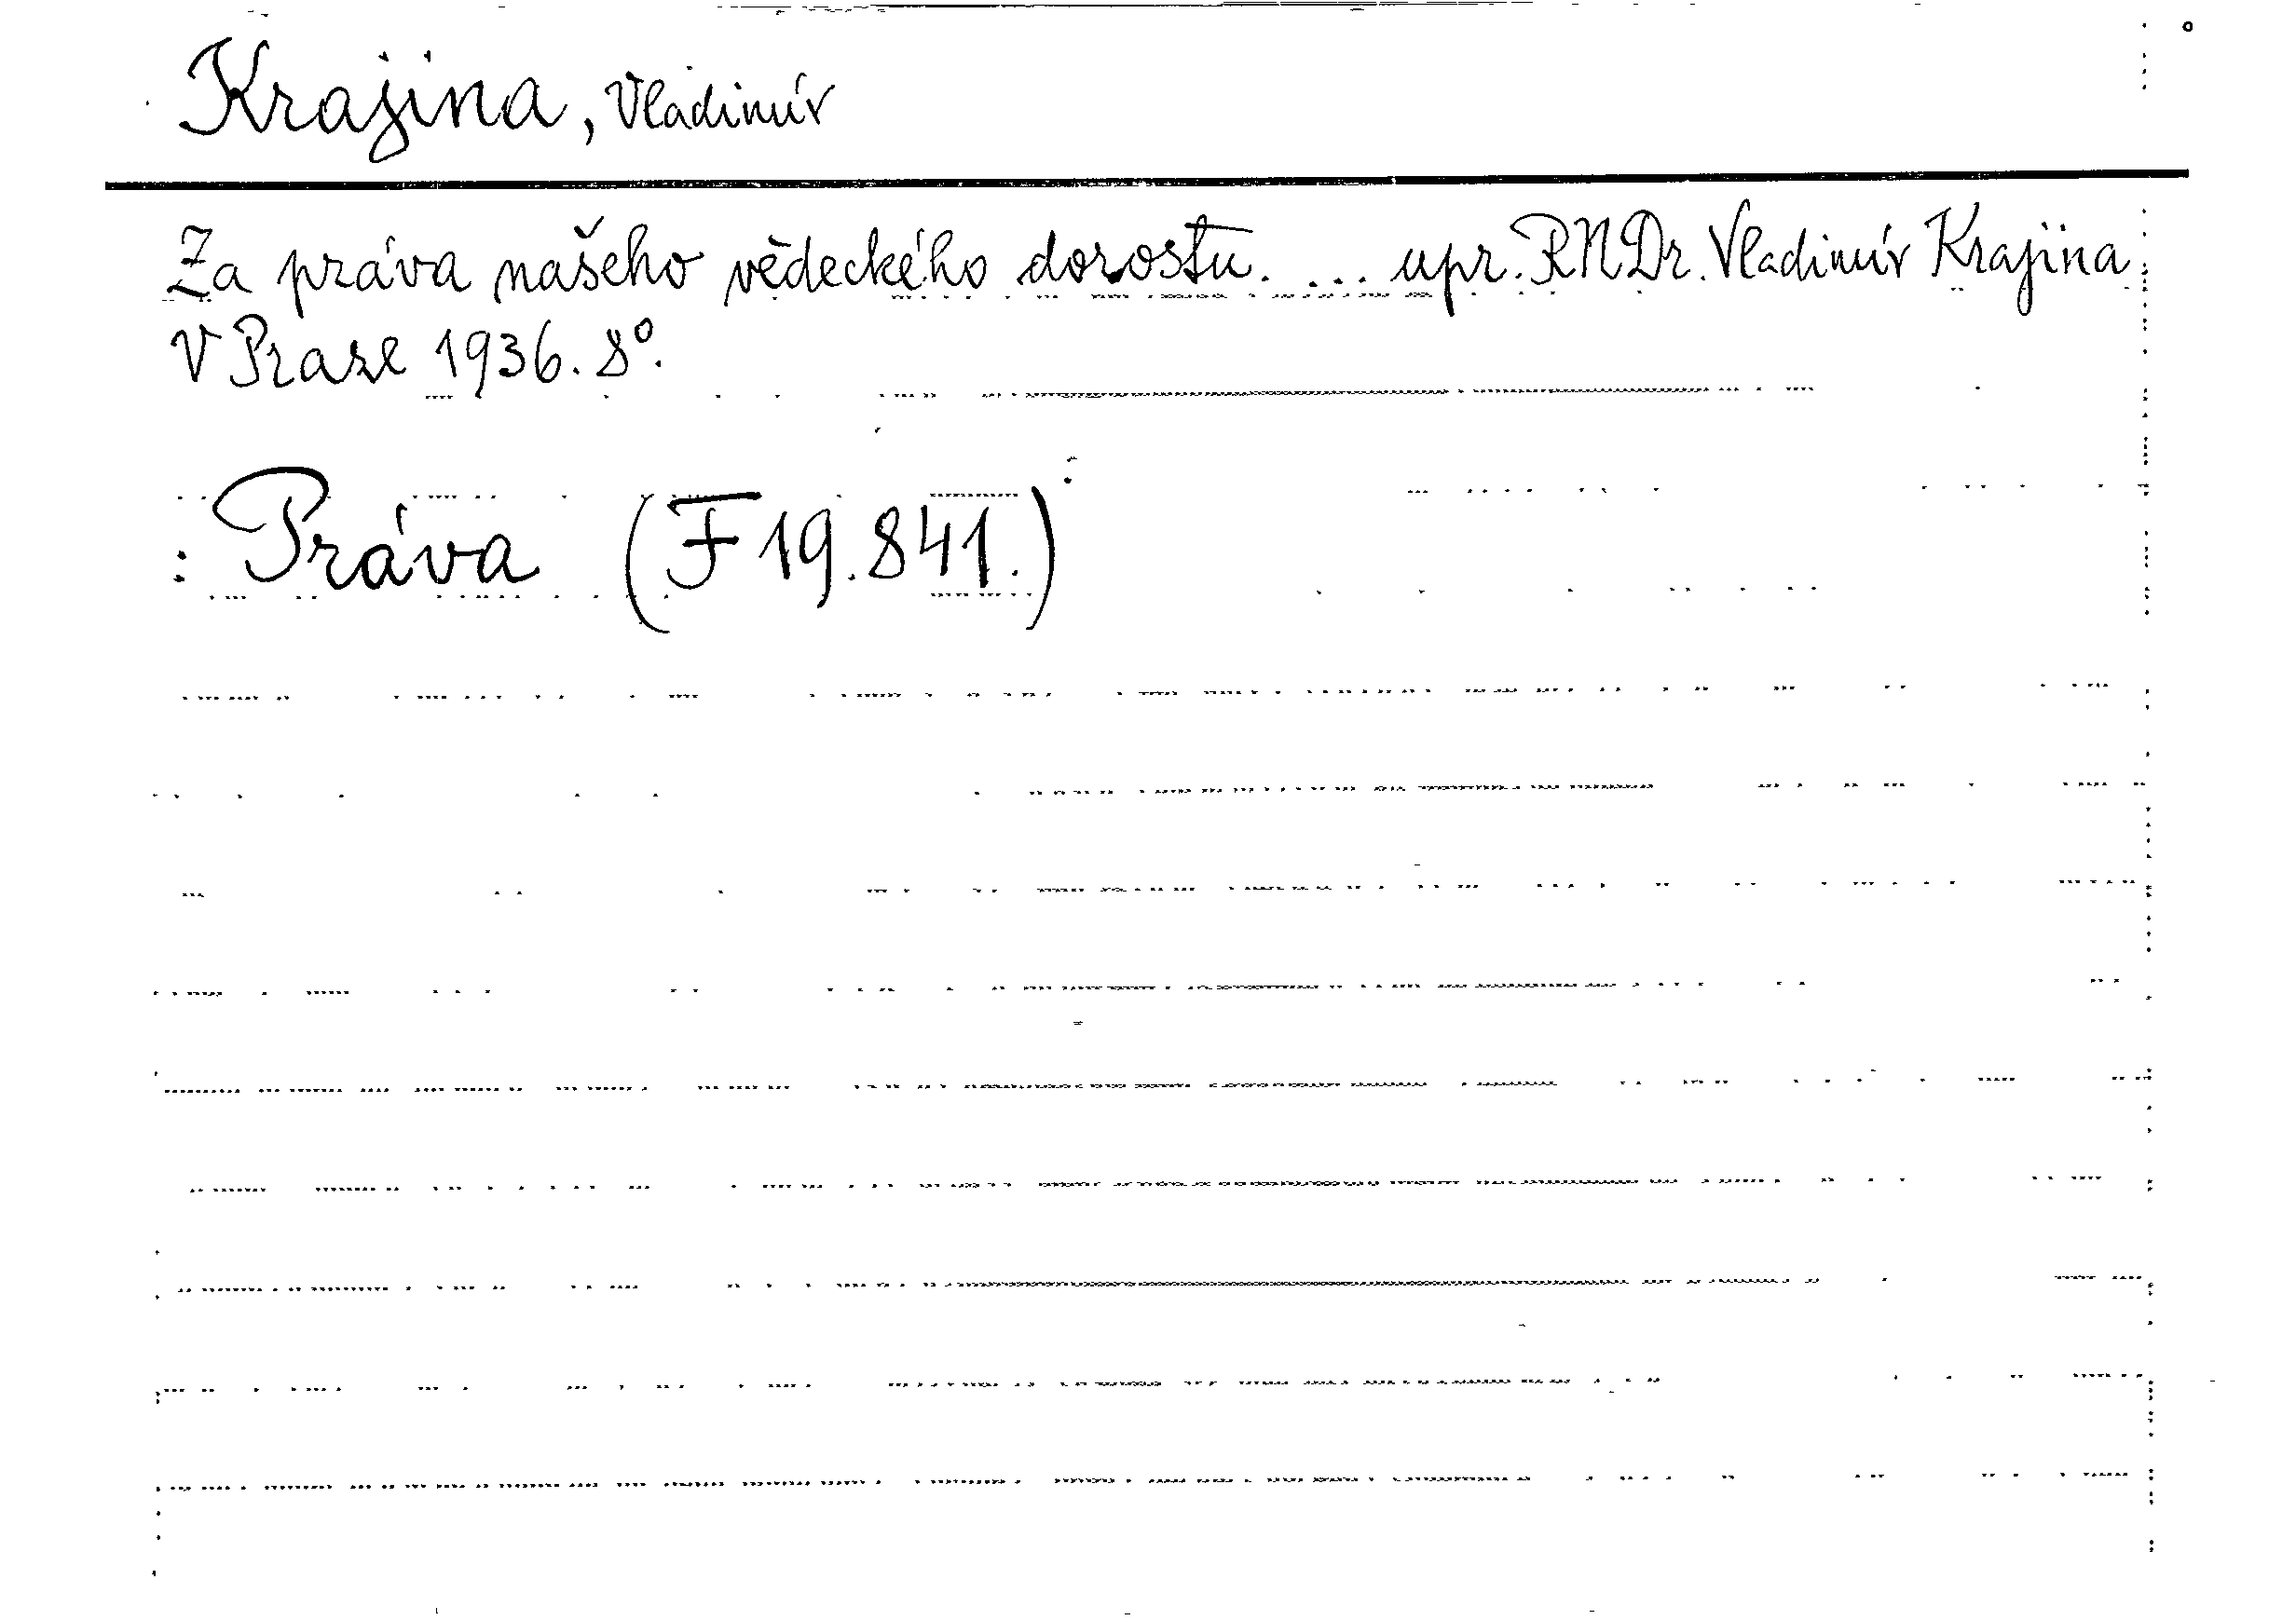 Krajina, Vladimír
Za práva našeho vědeckého dorostu. ... upr. RNDr. Vladimír Krajina
V Praze 1936. 8°.
: Práva (F 19.841.)